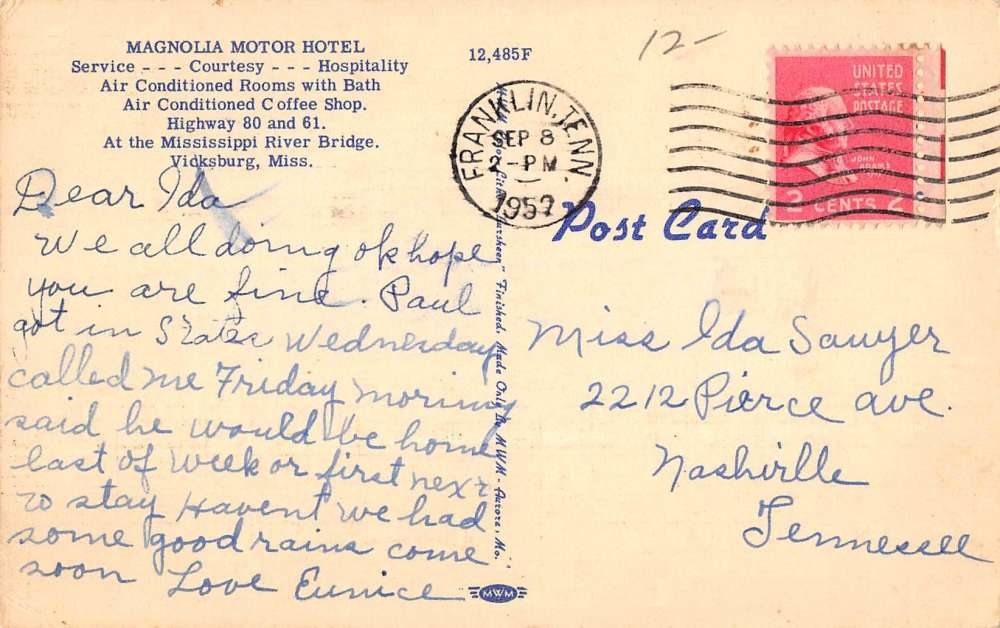 MAGNOLIA MOTOR HOTEL
Service - - - Courtesy - - - Hospitality
Air Conditioned Rooms with Bath
Air Conditioned Coffee Shop.
Highway 80 and 61.
At the Mississippi River Bridge.
Vicksburg, Miss.
12,485F
12-
FRANKLIN, TENN.
SEP 8
2-PM
1952
UNITED
STATES
POSTAGE
JOHN ADAMS
2 CENTS 2
Post Card
Dear Ida
We all doing ok hope
you are fine. Paul
got in States Wednesday
called me Friday morning
said he would be home
last of week or first next
to stay Havent we had
some good rains come
soon Love Eunice
Finished, Made Only By MWM - Aurora, Mo.
MWM
Miss Ida Sawyer
2212 Pierce ave.
Nashville
Tennessee